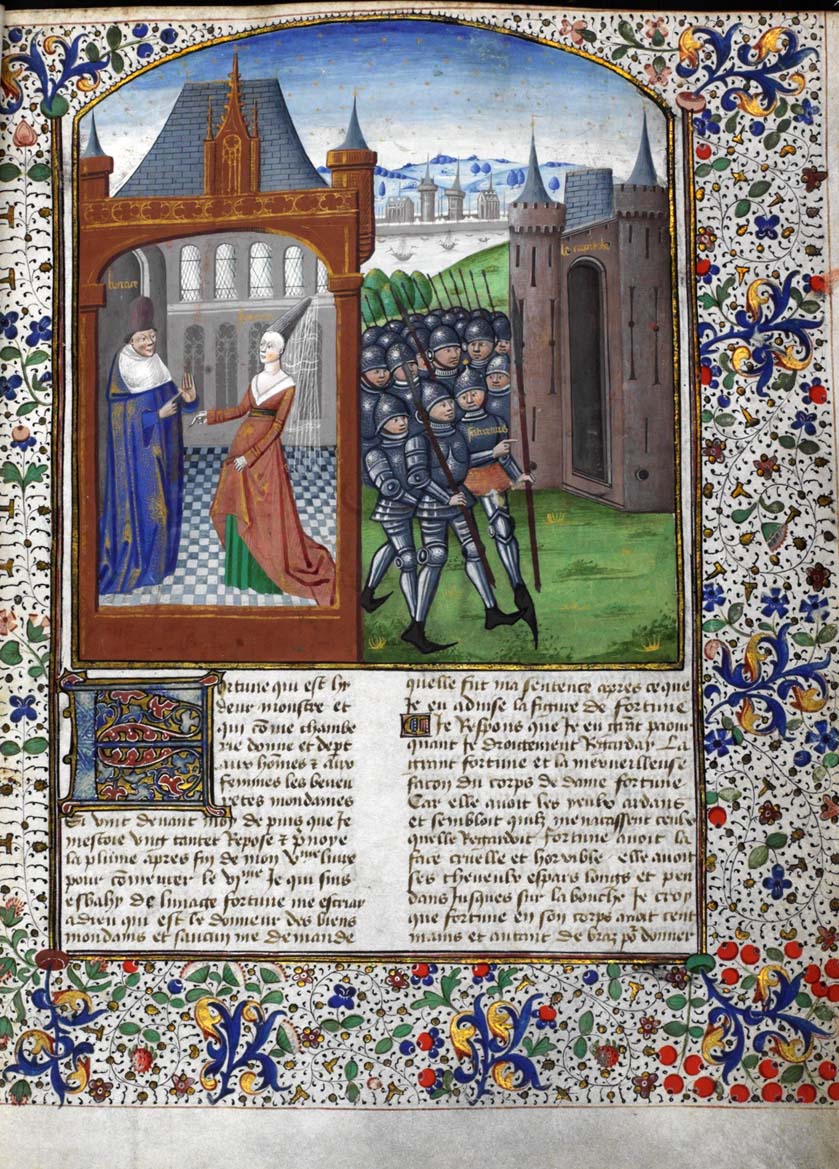 bocace
fortune
le capitole
saturnius
Fortune qui est hy
deux monstre et
qui cõme chambe
rie donne et dept
aux hõmes & aux
femmes les beneu
retes mondames
Si vint devant moy de puis que Je
mestoie vng tantet Repose & p̃noye
la plume apres fin de mon Vme liure
pour cõmẽcer le vi.me Je qui suis
esbahy de limage fortune me escriay
a dieu qui est le donneur des biens
mondains et saucun me demande
quelle fut ma sentence apres ce que
Je eu aduise la figure de fortune
Je Respons que Je eu grãt paour
quant Je droittement Regarday La
grant fortune et la merueilleuse
facon du corps de dame fortune
Car elle auoit les yeulx ardans
et sembloit quilz menacissent ceulx
quelle Regardoit fortune auoit la
face cruelle et horrible elle auoit
ses cheueulx espars longs et pen
dans Jusques sur la bouche Je croy
que fortune en son corps auoit cent
mains et autant de braz po̾ donner